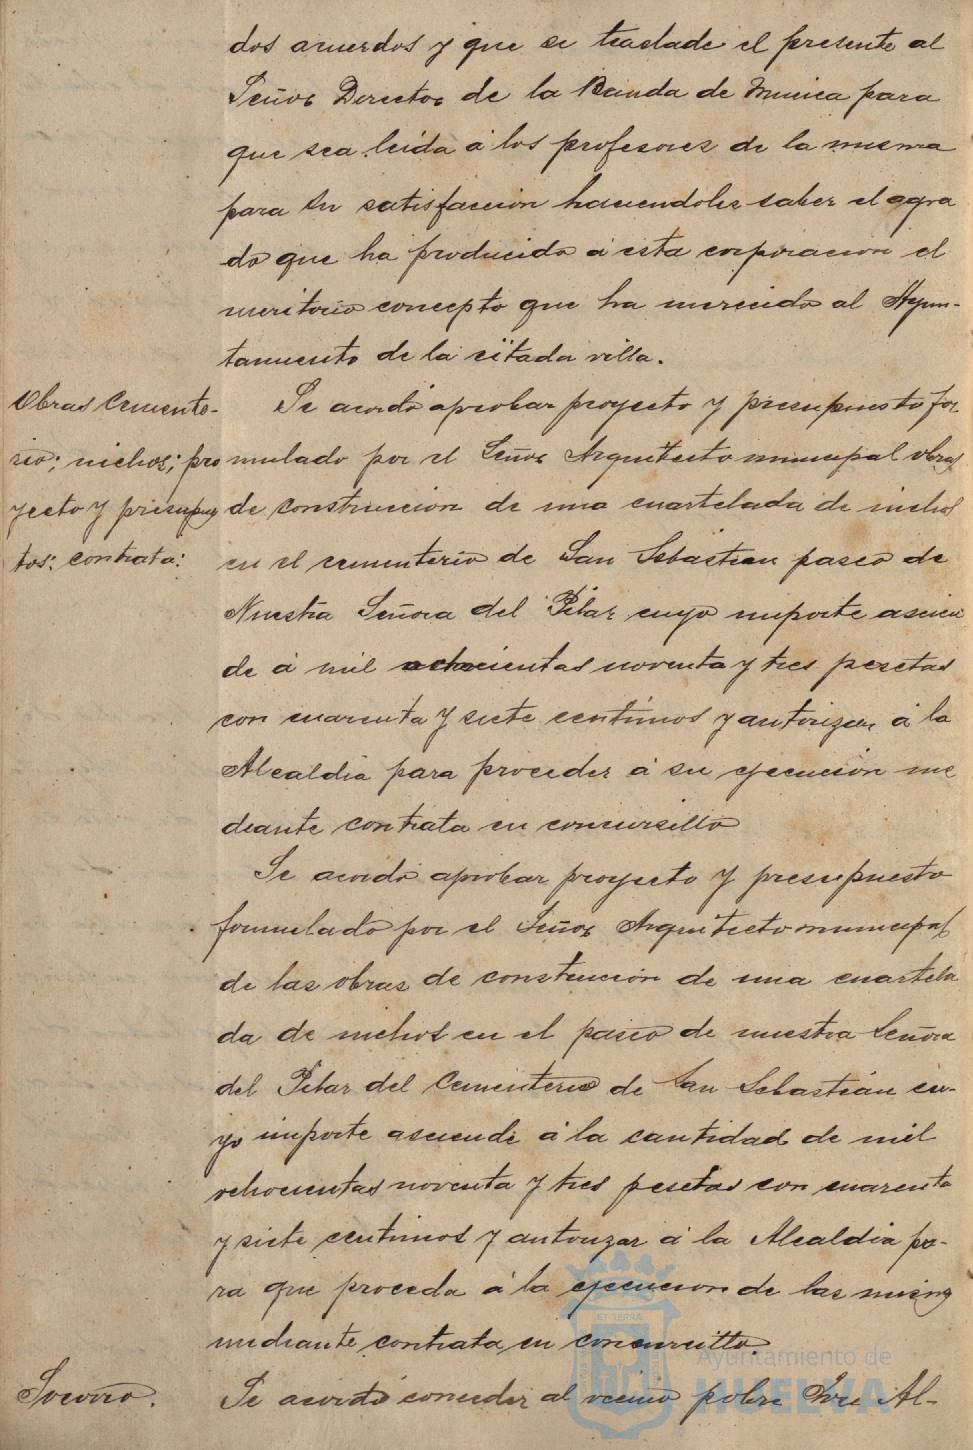 dos acuerdos y que se traslade el presente al
Señor Director de la Banda de Musica para
que sea leida á los profesores de la misma
para su satisfaccion haciendoles saber el agra
do que ha producido á esta corporacion el
meritorio concepto que ha merecido al Ayun-
tamiento de la citada villa.
Obras Cemente-
rio; nichos; pro
yecto y presupues
tos: contrata:
Se acordó aprobar proyecto y presupuesto for
mulado por el Señor Arquitecto municipal obras
de construccion de una cuartelada de nichos
en el cementerio de San Sebastian paseo de
Nuestra Señora del Pilar cuyo importe ascien
de á mil ochocientas noventa y tres pesetas
con cuarenta y siete centimos y autorizar á la
Alcaldia para proceder á su ejecución me
diante contrata en concursillo
Se acordó aprobar proyecto y presupuesto
formulado por el Señor Arquitecto municipal
de las obras de construcción de una cuartela
da de nichos en el paseo de nuestra Señora
del Pilar del Cementerio de San Sebastián cu-
yo importe asciende á la cantidad de mil
ochocientas noventa y tres pesetas con cuarenta
y siete centimos y autorizar á la Alcaldia pa-
ra que proceda á la ejecucion de las mismas
mediante contrata en concursillo.
Socorro.
Se acordó conceder al vecino pobre José Al-
Ayuntamiento de
HUELVA